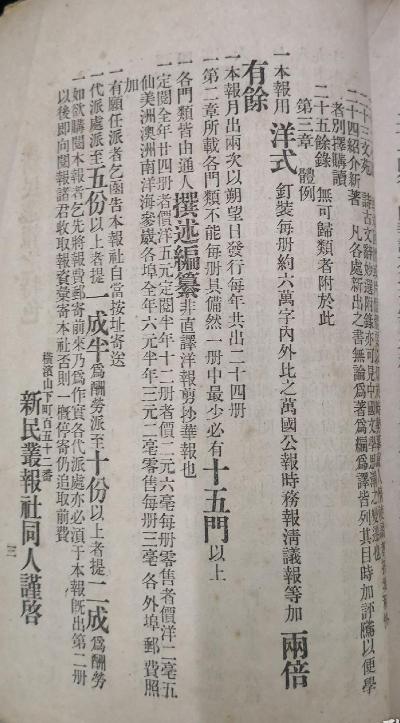 二十三文苑 詩古文辭妙選附錄亦可見中國文學思潮之變遷也
二十四紹介新著 凡各處新出之書無論爲著爲編爲譯皆列其目時加評隲以便學
者別擇購讀
二十五餘錄 無可歸類者附於此
第三章 體例
一本報用洋式釘裝每册約六萬字內外比之萬國公報時務報淸議報等加兩倍
有餘
一本報月出兩次以朔望日發行每年共出二十四册
一第二章所載各門類不能每册具備然一册中最少必有十五門以上
一各門類皆由通人撰述編纂非直譯洋報剪抄華報也
一定閱全年廿四册者價洋五元定閱半年十二册者價二元六毫每册零售者價洋二毫五
仙美洲澳洲南洋海參崴各埠全年六元半年三元二毫零售每册三毫各外埠郵費照
加
一有願任派者乞函告本報社自當按址寄送
一代派處派至五份以上者提一成半爲酬勞派至十份以上者提二成爲酬勞
一如欲購閱本報者乞先將報費郵寄前來乃爲作實各代派處亦必須于本報旣出第二册
以後即向閱報諸君收取報資彙寄本社否則一概停寄仍追取前費
橫濱山下町百五十二番
新民叢報社同人謹啓
三